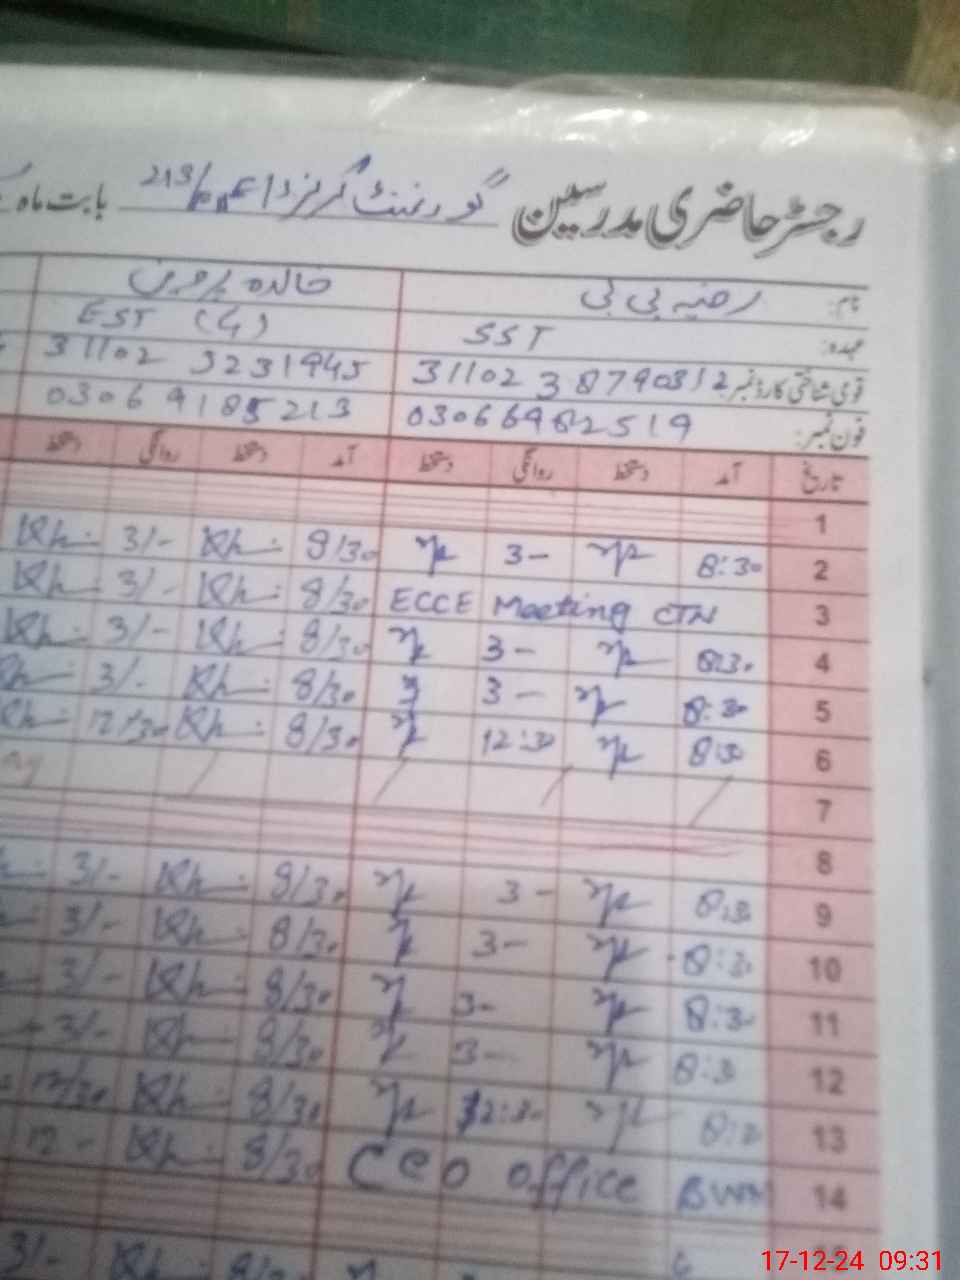 رجسٹر حاضری مدرسین گورنمنٹ گرلز بابت ماہ
نام: رضیہ بی بی خالدہ پروین
عہدہ: SST EST (G)
قومی شناختی کارڈ نمبر: 31102 3231945
فون نمبر: 03066962519 03069185213
تاریخ آمد دستخط روانگی دستخط آمد دستخط روانگی دستخط
1
2 8:30 3- 8/30 Kh. 3/- Kh.
3 ECCE Meeting CTN 8/30 Kh. 3/- Kh.
4 8:30 3- 8/30 Kh. 3/- Kh.
5 8:30 3- 8/30 Kh. 3/-
6 8:30 12:30 8/30 Kh. 12/30
7
8
9 8:30 3- 8/30 Kh. 3/-
10 8:30 3- 8/30 Kh. 3/-
11 8:30 3- 8/30 Kh. 3/-
12 8:30 3- 8/30 Kh. 3/-
13 8:30 8/30 Kh. 12/30
14 CEO office BWN 8/30 Kh. 12-
Kh. 3/-
17-12-24 09:31